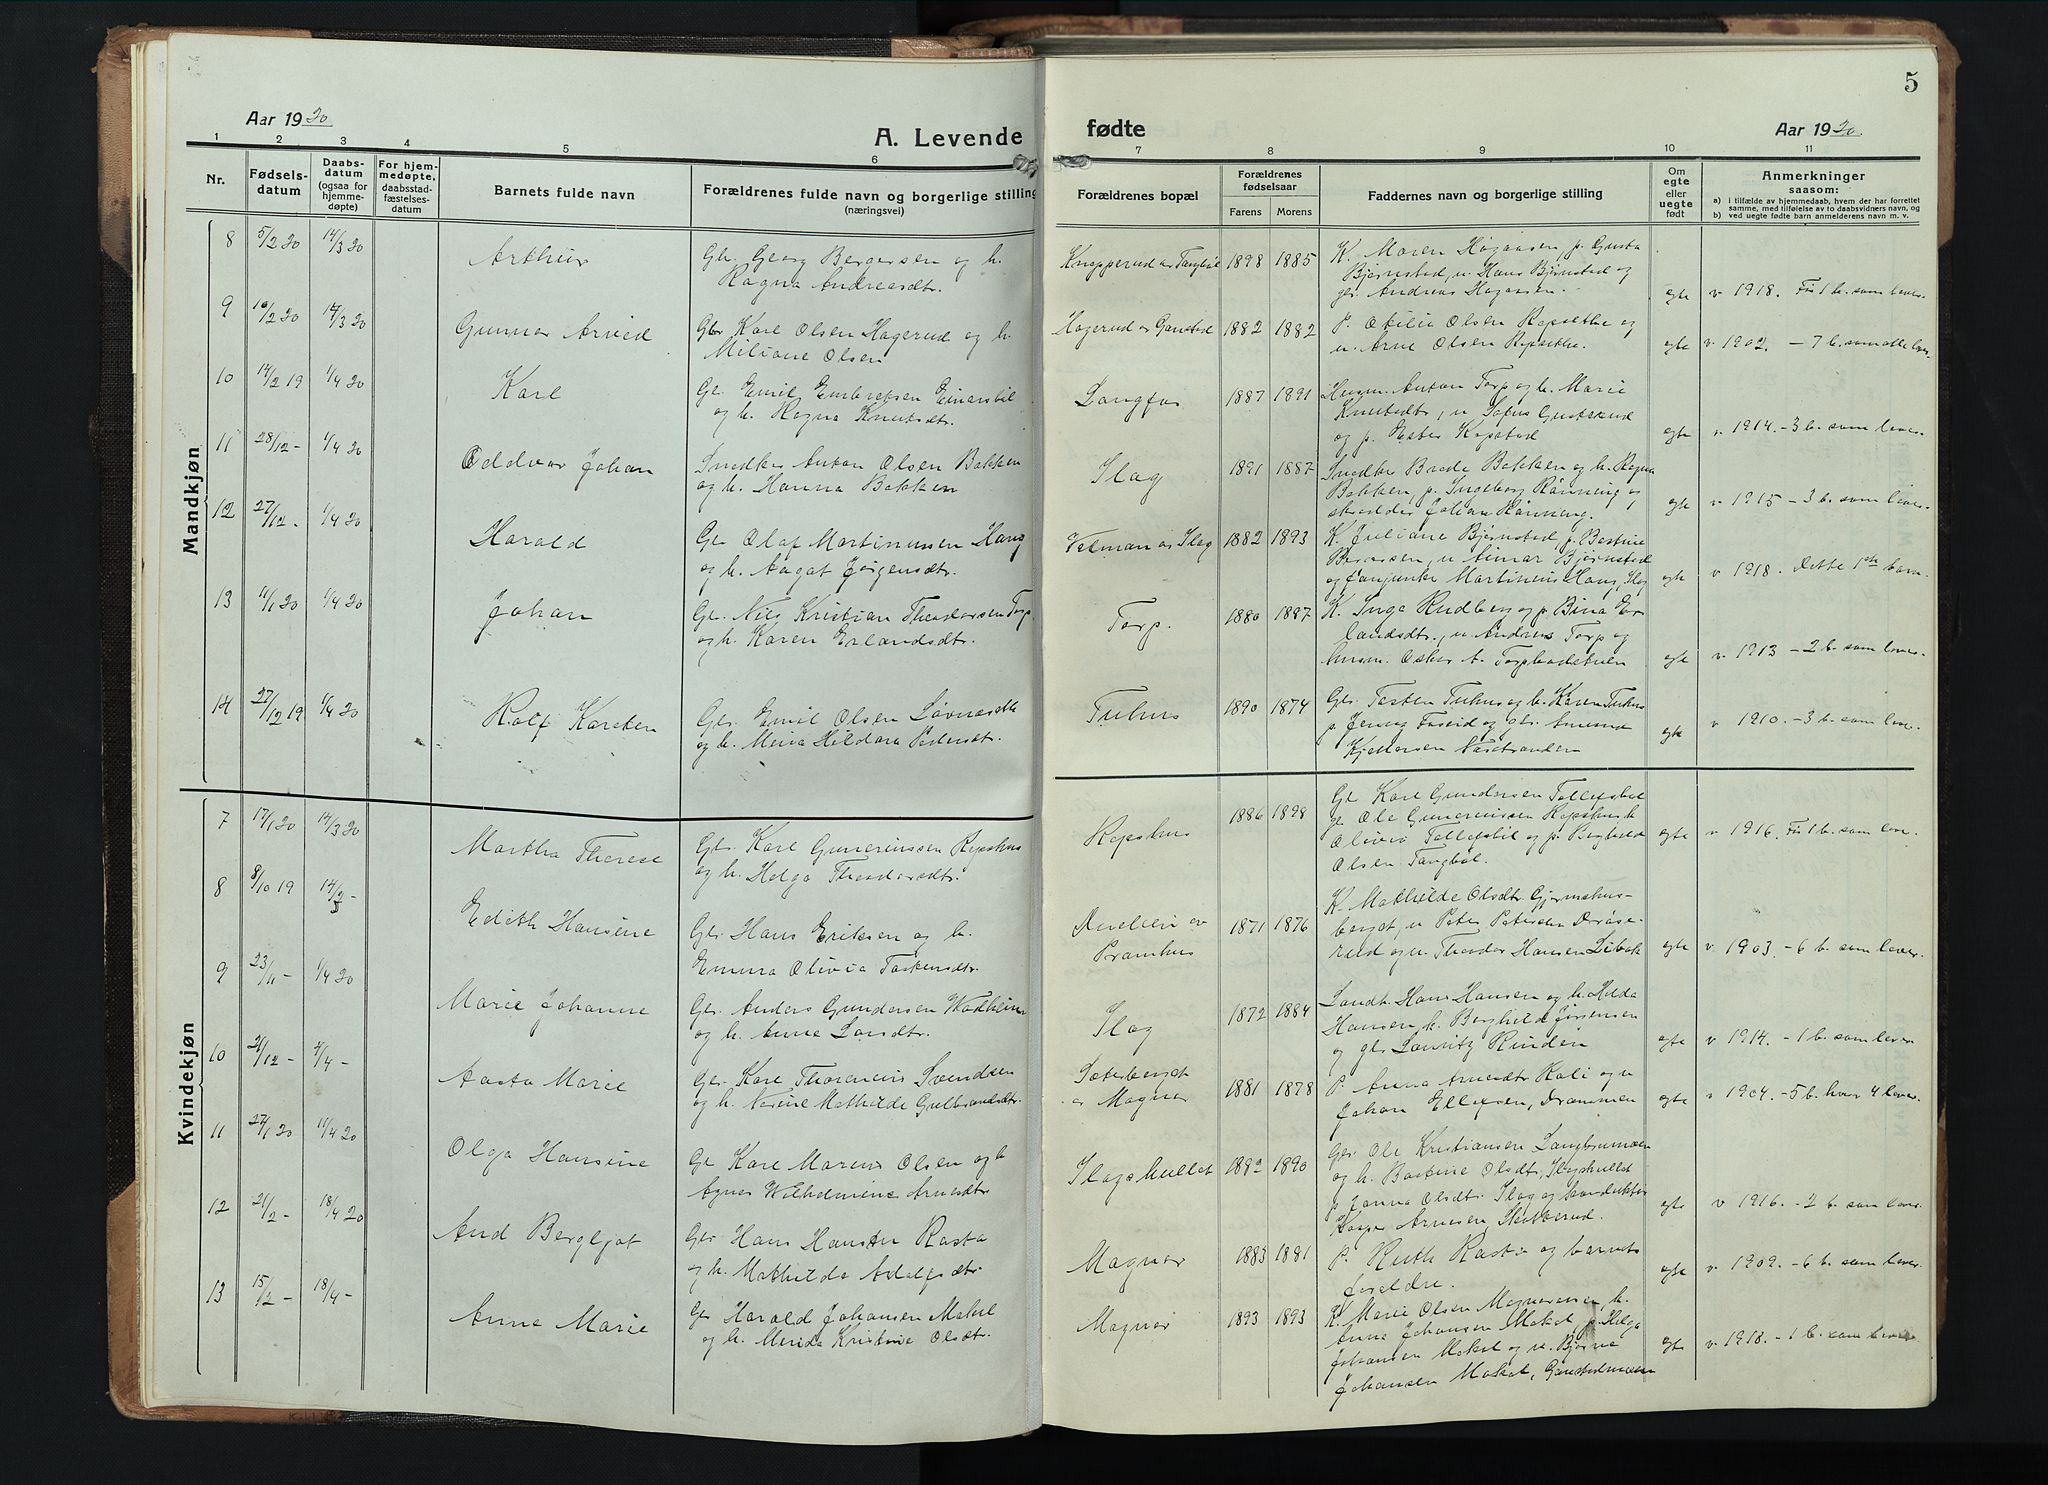 5
Aar 1920
A. Levende fødte
Aar 1920.
1 2 3 4 5 6 7 8 9 10 11
Nr.
Fødsels-
datum
Daabs-
datum
(ogsaa for
hjemme-
døpte)
For hjem-
medøpte,
daabsstad-
fæstelses-
datum
Barnets fulde navn
Forældrenes fulde navn og borgerlige stilling
(næringsvei)
Forældrenes bopæl
Forældrenes
fødselsaar
Farens Morens
Faddernes navn og borgerlige stilling
Om
egte
eller
uegte
født
Anmerkninger
saasom:
a) i tilfælde av hjemmedaab, hvem der har forrettet
samme, med tilføielse av to daabsvidners navn, og
b) ved uegte fødte barn anmelderens navn m. v.
Mandkjøn
8 5/2 20 14/3 20 Arthur
Gb. Georg Bergersen og h.
Ragna Andreasdtr.
Knapperud av Tangbøl 1898 1885
K. Maren Høgaasen, p. Gusta
Bjørnstad, u. Hans Bjørnstad og
gb. Andreas Høgaasen.
egte v. 1918. Før 1 b. som lever.
9 10/2 20 14/3 20 Gunnar Arvid
Gbr Karl Olsen Hagerud og h.
Miliane Olsen
Hagerud av Ganstad 1882 1882
P. Otilie Olsen Repsethe og
u. Arne Olsen Repsethe.
egte v 1902. – 7 b. som alle lever.
10 14/2 19 4/4 20 Karl
Gb. Emil Embretsen Einarsbøl
og h. Ragna Knutsdtr.
Langfos 1887 1891
Husm. Anton Torp og h. Marie
Knutsdtr, u
og p. Ester Kopstad
egte v. 1914. – 3 b. som lever.
11 28/12 – 4/4 20 Oddvar Johan
Snedker Anton Olsen Bakken
og h. Hanna Bakken
Ilag 1891 1887
Snedker Brede Bakken og h. Ragna
Bakken, p. Ingeborg Rønning og
skrædder Johan Rønning.
egte v. 1915 – 3 b. som lever.
12 27/12 – 4/4 20 Harald
Gb. Olaf Martinussen Haug
og h. Aagot Jørgensdtr.
av Ilag 1882 1893
K. Juliane Bjørnstad, p. Bertine
Bergersen, u. Einar Bjørnstad
og Martinius Haug, Ilag
egte v. 1918. Dette 1ste barn.
13 11/1 20 4/4 20 Johan
Gb. Nils Kristian Theodorsen Torp
og h. Karen Erlandsdtr.
Torp. 1880 1887
K. Inga Rudberg og p. Bina Er-
landsdtr., u. Andreas Torp og
husm. Oskar A. Torpbadstuen
egte v. 1913 – 2 b. som lever.
14 27/12 19 4/4 20 Rolf Karsten
Gbr. Emil Olsen Løvnæseth
og h. Mina Hildara Pedersdtr.
Tuhus 1890 1874
Gbr. Torsten Tuhus og h. Karen Tuhus
p. Jenny Foseid og gbr. Amund
Kjettersen Næsstranden
egte v 1910. – 3 b. som lever.
Kvindekjøn
7 17/1 20 14/3 20 Martha Therese
Gbr. Karl Gunerinssen Repshus
og h. Helga Theodorsdtr.
Repshus 1886 1898
Gb Karl Gundersen Tollefsbøl
gb. Ole Gunerinssen Repshus h.
Olivia Tollefsbøl og p. Ragnhild
Olsen Tangbøl.
egte v. 1916. Før 1 b. som lever.
8 8/10 19 14/3 – Edith Hansine
Gbr Hans Eriksen og h.
Emma Olivia Torkensdtr.
av
Pramhus 1871 1876
K. Mathilde Olsdtr. Gjørmshus-
berget, u. Peter Petersen
og u. Theodor Hansen Libak
egte v. 1903. – 6 b. som lever.
9 23/11 – 4/4 20 Marie Johanne
Gbr. Anders Gundersen Wadheim
og h. Anne Larsdtr.
Ilag 1872 1884
Landh. Hans Hansen og h. Hilda
Hansen, h. Berghild Jørgensen
og gbr Lauritz Rinden
egte v 1914. – 1 b. som lever
10 21/12 – 4/4 – Aasta Marie
Gbr. Karl Thorenius Svendsen
og h. Nerine Mathilde Gulbrandsdtr.
Sæterberget
av Magnor 1881 1878
P. Anna Arnesdtr Roli og u
Johan Ellefsen, Drammen
egte v 1904. – 5 b. hvor 4 lever.
11 27/1 20 11/4 20 Olga Hansine
Gb Karl Marius Olsen og h
Agnes Wilhelmine Arnesdtr
Ilagshullet 1892 1890
Gbr Ole Kristiansen Langbrumoen
og h. Bertine Olsdtr, Ilagshullet
p. Janna Olsdtr. Ilag og konduktør
Kasper Arnesen, Skotterud.
egte v 1916. – 2 b. som lever.
12 21/2 – 18/4 20 Aud Bergljot
Gbr Hans Hansen Rasta
og h. Mathilde Adolfsdtr.
Magnor 1883 1881
P. Ruth Rasta og barnets
foreldre.
egte v. 1909. – 6 b. som lever.
13 15/2 – 18/4 – Anna Marie
Gb Harald Johansen Makal
og h. Merida Kristine Olsdtr.
Magnor 1893 1893
K. Marie Olsen Magnormoen, h.
Anna Johansen Makal, p. Helga
Johansen Makal og u. Bjarne
Johansen Makal, Ganstadmoen
egte v. 1918. – 1 b. som lever